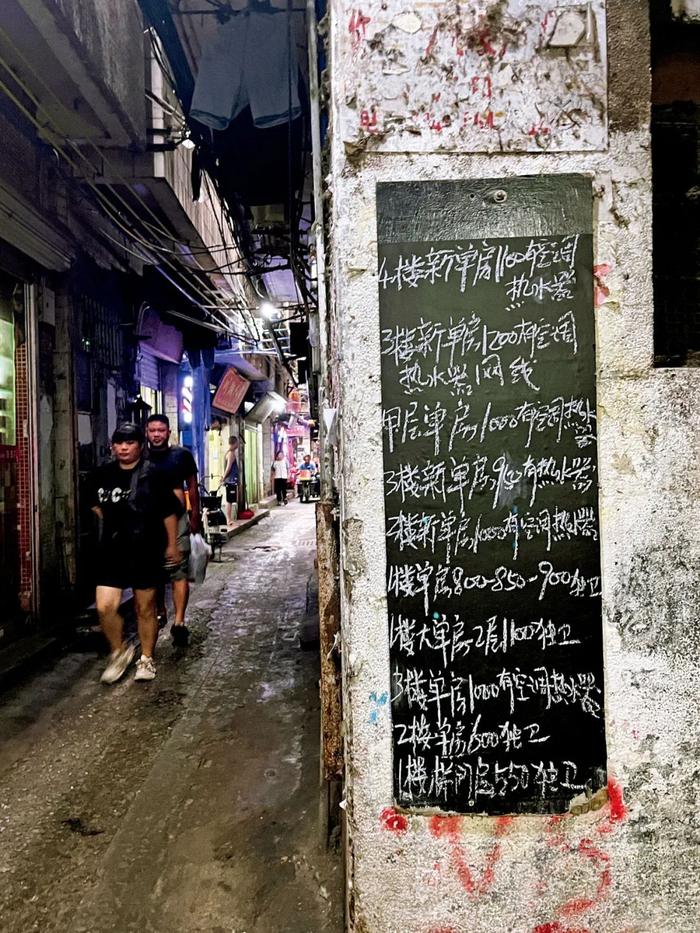 4楼新单房1100有空调
热水器
3楼新单房1200有空调
热水器 网线
甲层单房1000有空调热水器
3楼新单房900有热水器
2楼新单房1000有空调热水器
1楼单房800-850-900独卫
1楼大单房2层1100独卫
3楼单房1000有空调热水器
2楼单房600独卫
1楼梯间房550独卫